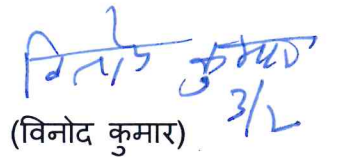 विनोद कुमार
3/2
(विनोद कुमार)